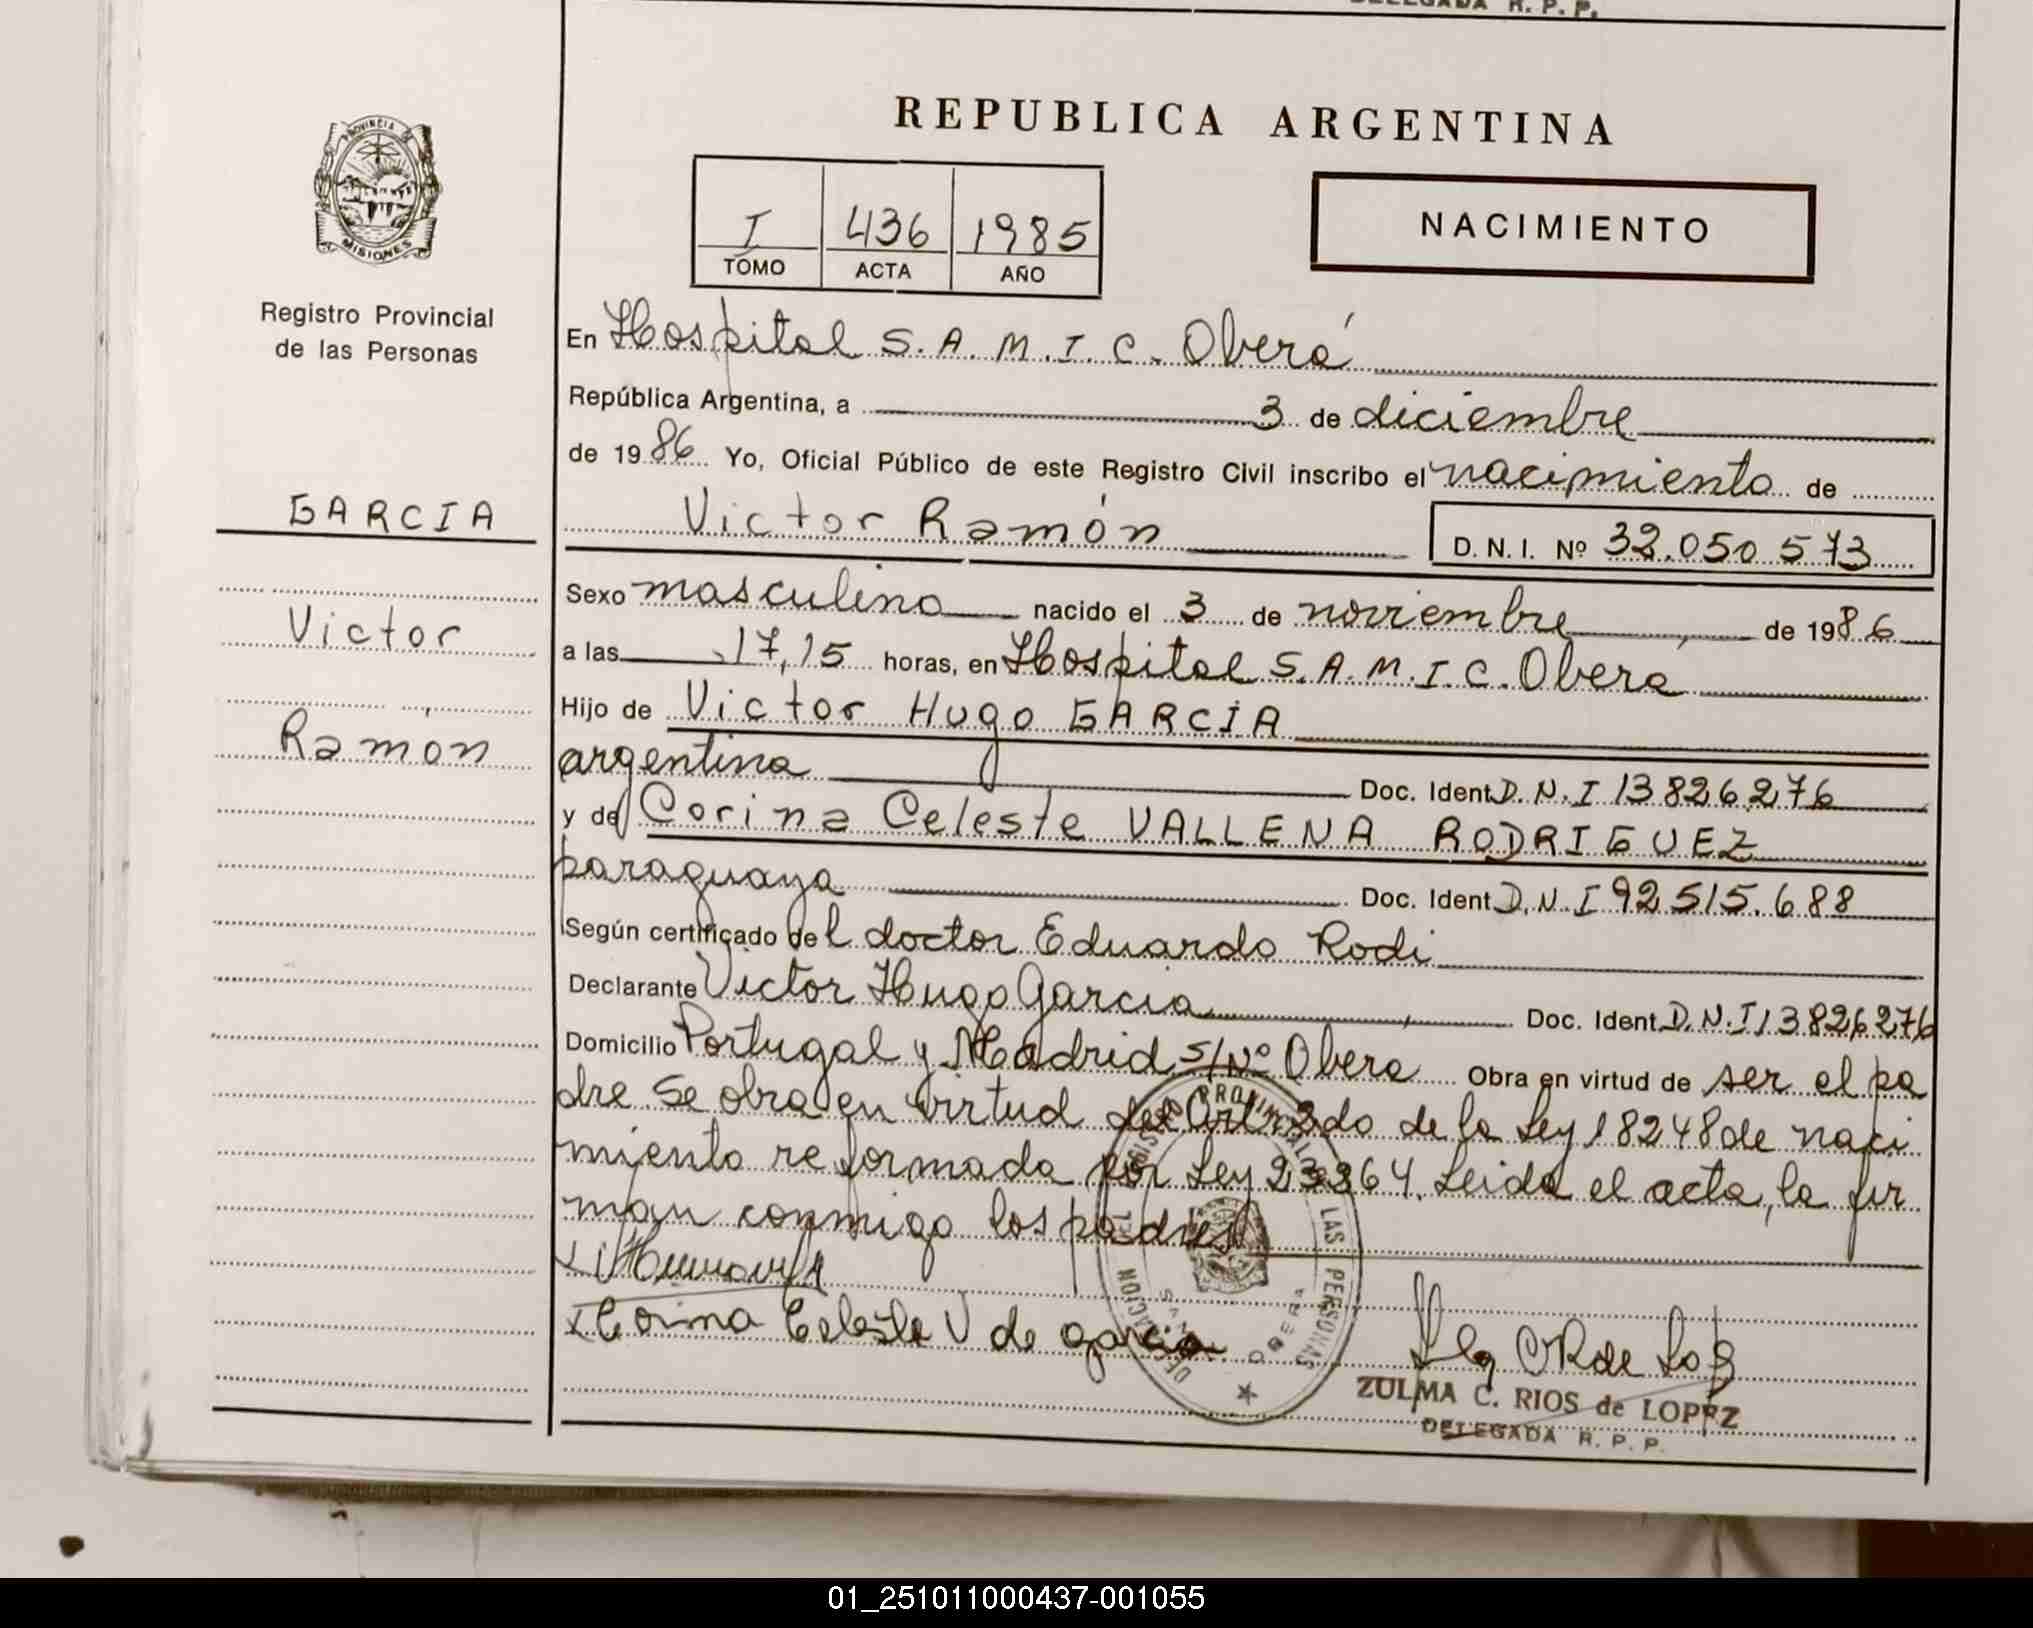 DELEGADA R. P. P.
REPUBLICA ARGENTINA
PROVINCIA DE
MISIONES
I 436 1985
TOMO ACTA AÑO
NACIMIENTO
Registro Provincial
de las Personas
GARCIA
Victor
Ramón
En Hospital S. A. M. I. C. Oberá
República Argentina, a 3 de diciembre
de 1986 Yo, Oficial Público de este Registro Civil inscribo el nacimiento de
Victor Ramón D. N. I. Nº 32.050 573
Sexo masculino nacido el 3 de noviembre de 1986
a las 17,15 horas, en Hospital S. A. M. I. C. Oberá
Hijo de Victor Hugo GARCÍA
argentina Doc. Ident. D. N. I 13826276
y de Corina Celeste VALLENA RODRIGUEZ
paraguaya Doc. Ident D. N. I 92 515.688
Según certificado del doctor Eduardo Rodi
Declarante Victor Hugo Garcia Doc. Ident. D. N. I 13826276
Domicilio Portugal y Madrid S/Nº Obera Obra en virtud de ser el pa
dre Se obra en virtud del Art. 2do de la Ley 18248 de naci
miento reformada por Ley 23264. Leida el acta, la fir
man conmigo los padres
x Corina Celeste V de garcia
DELEGACION DEL REGISTRO PROVINCIAL DE LAS PERSONAS
OBERA
ZULMA C. RIOS de LOPEZ
DELEGADA R. P. P.
01_251011000437-001055